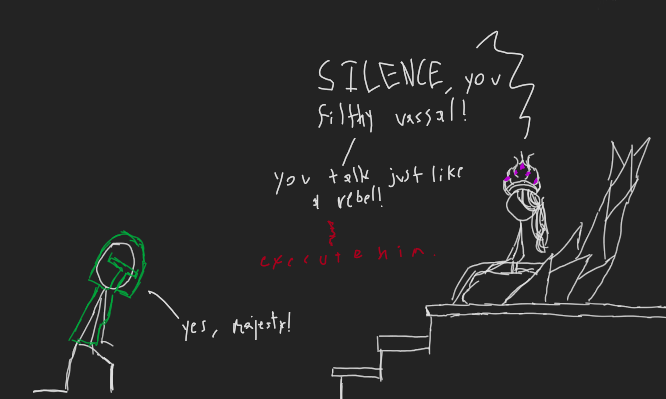 SILENCE, you
filthy vassal!
you talk just like
a rebel!
execute him.
yes, majesty!